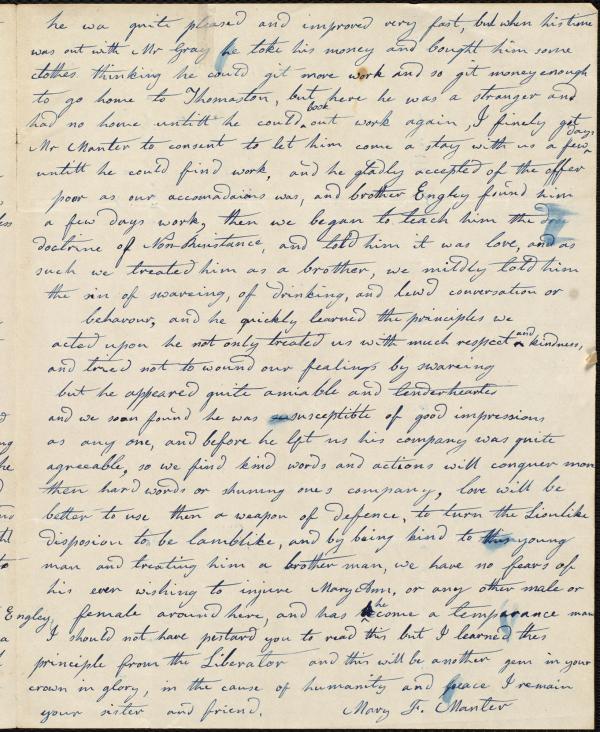 he wa quite pleased and improved very fast, but when his time
was out with Mr Gray he toke his money and bought him some
clothes thinking he could git more work and so git money enough
to go home to Thomaston, but here he was a stranger and
had no home untill he could book out work again, I finely got
Mr Manter to consent to let him come a stay with us a few days
untill he could find work, and he gladly accepted of the offer
poor as our accomadaions was, and brother Engley found him
a few days work, then we began to teach him the
doctrine of Non-Resistance, and told him it was love, and as
such we treated him as a brother, we mildly told him
the sin of swareing, of drinking, and lewd conversation or
behavour, and he quickly learned the principles we
acted upon he not only treated us with much respect and kindness,
and tried not to wound our fealings by swareing
but he appeared quite amiable and tenderhearted
and we soon found he was susceptible of good impressions
as any one, and before he left us his company was quite
agreeable, so we find kind words and actions will conquer more
then hard words or shuning ones company, love will be
better to use then a weapon of defence, to turn the Lionlike
disposion to be lamblike, and by being kind to this young
man and treating him a brother man, we have no fears of
his ever wishing to injure Mary Ann, or any other male or
Engley, female around here, and has become a temperance man
I should not have pesterd you to read the this but I learned this
principle from the Liberator and this will be another gem in your
crown in glory, in the cause of humanity and peace I remain
your sister and friend. Mary F. Manter